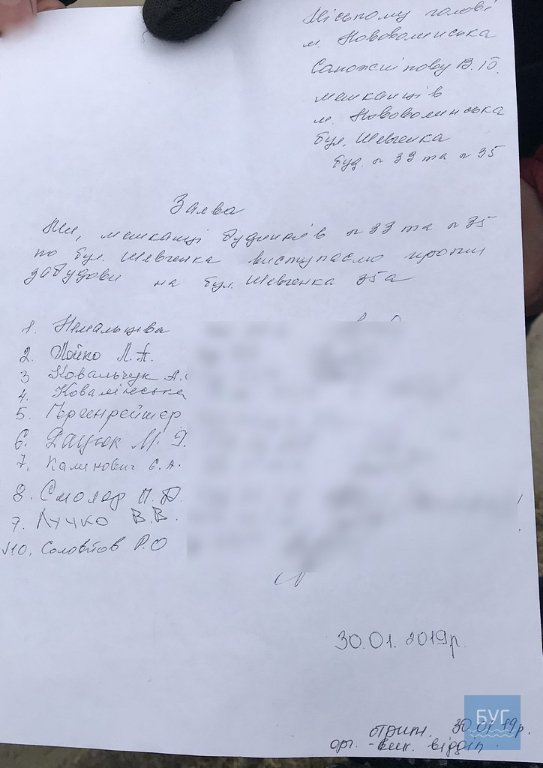 Міському голові
м. Нововолинська
Сапожнікову В.Б.
мешканців
м. Нововолинська
бул. Шевченка
буд № 33 та № 35
Заява
Ми, мешканці будинків № 33 та № 35
по бул. Шевченка виступаємо проти
забудови на бул. Шевченка 35а
1.
2. Пойко Л.А.
3 Ковальчук А.
4. Ковалінська
5. Гергенрейтер
6. Дацюк М.
7. Калинович Є.А.
8. Смоляр П.Д.
9. Лучко В.В.
10. Соловйов Р.О
30.01.2019р.
отрим. 30.01.19р.
орг. - вик. відділ
БУГ